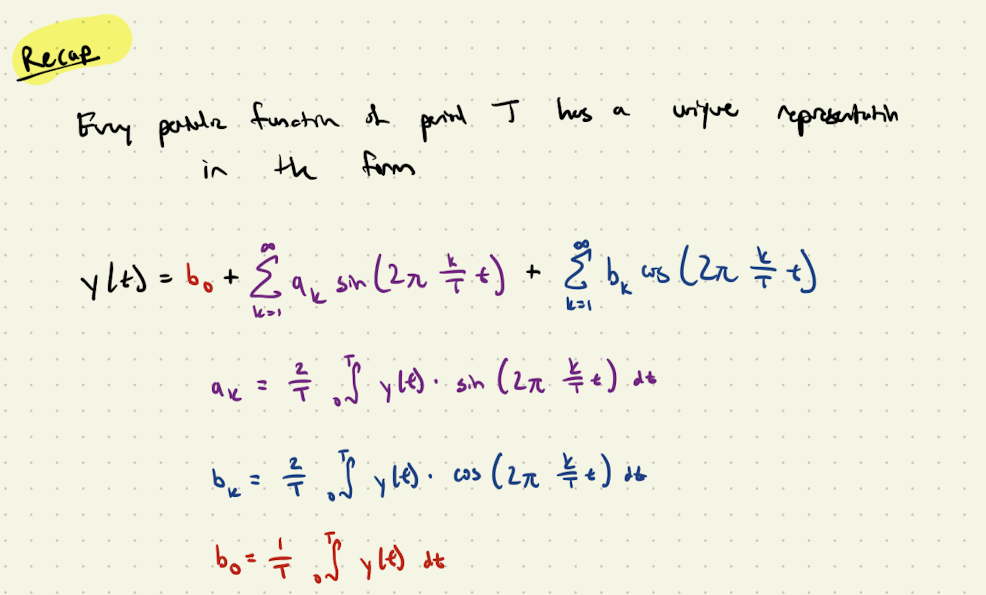 Recap
Every periodic function of period T has a unique representation
in the form
y(t) = b₀ + ∑_{k=1}^{∞} a_k sin(2π k/T t) + ∑_{k=1}^{∞} b_k cos(2π k/T t)
a_k = 2/T ₀∫ᵀ y(t) · sin(2π k/T t) dt
b_k = 2/T ₀∫ᵀ y(t) · cos(2π k/T t) dt
b₀ = 1/T ₀∫ᵀ y(t) dt